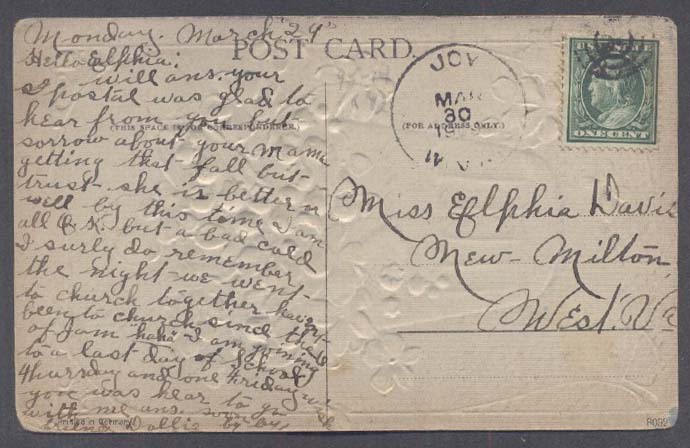 Monday. March "29"
POST CARD.
Hello Eflphia:
will ans. your
postal was glad to
hear from you but
sorrow about your mama
getting that fall but
trust she is better n
well by this time I am
all O.K. but a bad cold
I surly do remember
the night we went
to church together haven't
been to church since then
of jam "haha" I am going
to a last day of school
Thursday and one Friday wish
you was hear to go
with me ans. soon by by
Dollie
(THIS SPACE FOR CORRESPONDENCE.)
(FOR ADDRESS ONLY.)
JOY
MAR
30
W. VA.
ONE CENT
Miss Eflphia Davis
New-Milton
West. Va
Printed in Germany